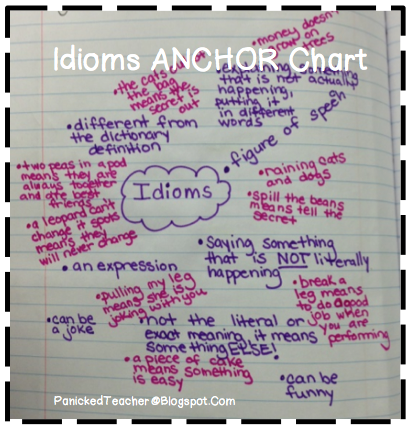 Idioms ANCHOR Chart
• money doesn't
grow on
trees
• the cats out of
the bag
means the
secret is
out
that is not actually
happening,
putting it
in different
words
• figure of speech
• different from
the dictionary
definition
• two peas in a pod
means they are
always together
and are best
friends
Idioms
• raining cats
and dogs
• spill the beans
means tell the
secret
• a leopard can't
change it spots
means they
will never change
• saying something
that is NOT literally
happening
• an expression
• pulling my leg
means she is
joking with you
• break a
leg means
to do a good
job when
you are
performing
• can be
a joke
• not the literal or
exact meaning, it means
something ELSE!
• a piece of cake
means something
is easy
• can be
funny
PanickedTeacher@Blogspot.Com